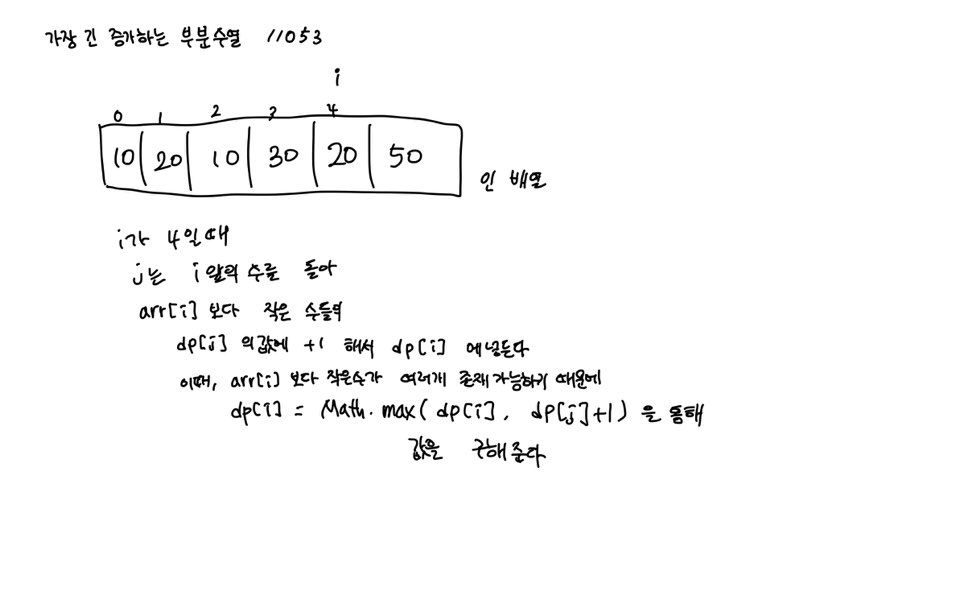 가장 긴 증가하는 부분수열 11053
i
0 1 2 3 4
10 20 10 30 20 50
인 배열
i가 4일때
j는 i앞의 수를 돌아
arr[i] 보다 작은 수들의
dp[j] 의값에 +1 해서 dp[i] 에넣는다
이때, arr[i] 보다 작은수가 여러개 존재가능하기 때문에
dp[i] = Math.max( dp[i], dp[j]+1) 을 통해
값을 구해준다